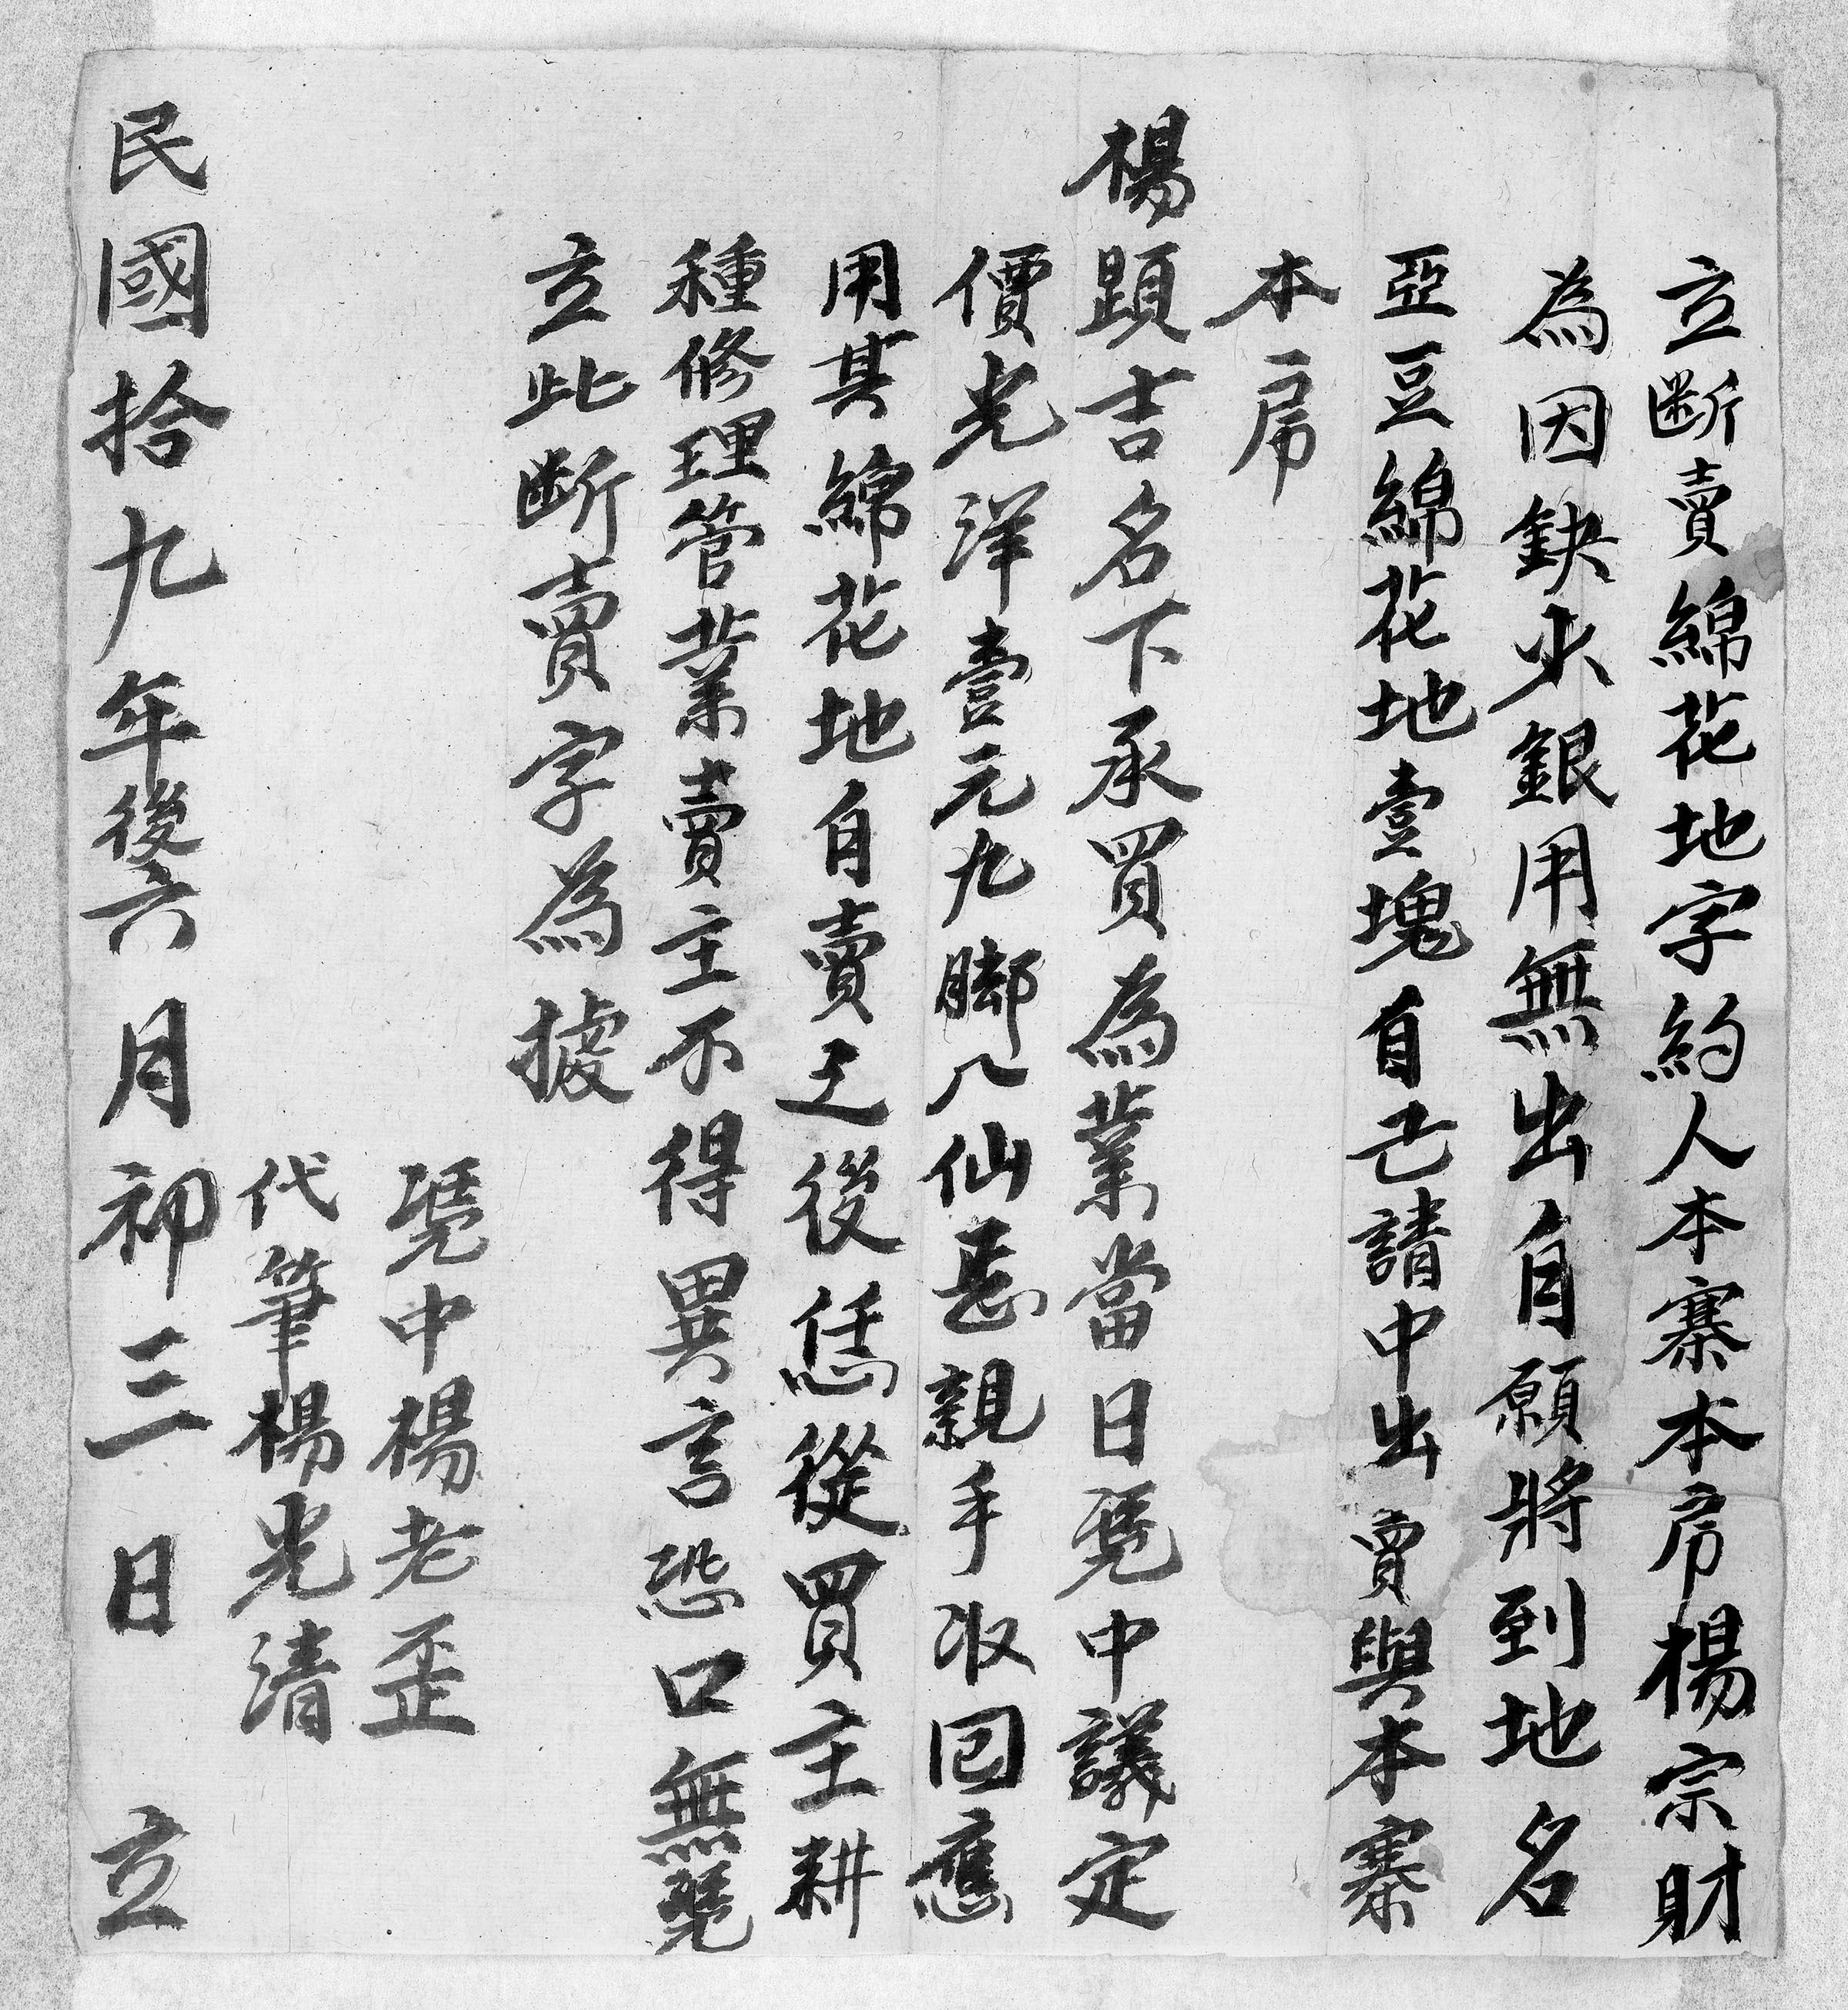 立斷賣綿花地字約人本寨本房楊宗財
為因缺少銀用無出自願將到地名
亞豆綿花地壹塊自己請中出賣與本寨
本房
楊顕吉名下承買為業當日凴中議定
價光洋壹元九脚八仙 親手收回應
用其綿花地自賣之後恁從買主耕
種修理管業賣主不得異言恐口無凴
立此斷賣字為據
凴中楊老歪
代筆楊光清
民國拾九年後六月初三日 立